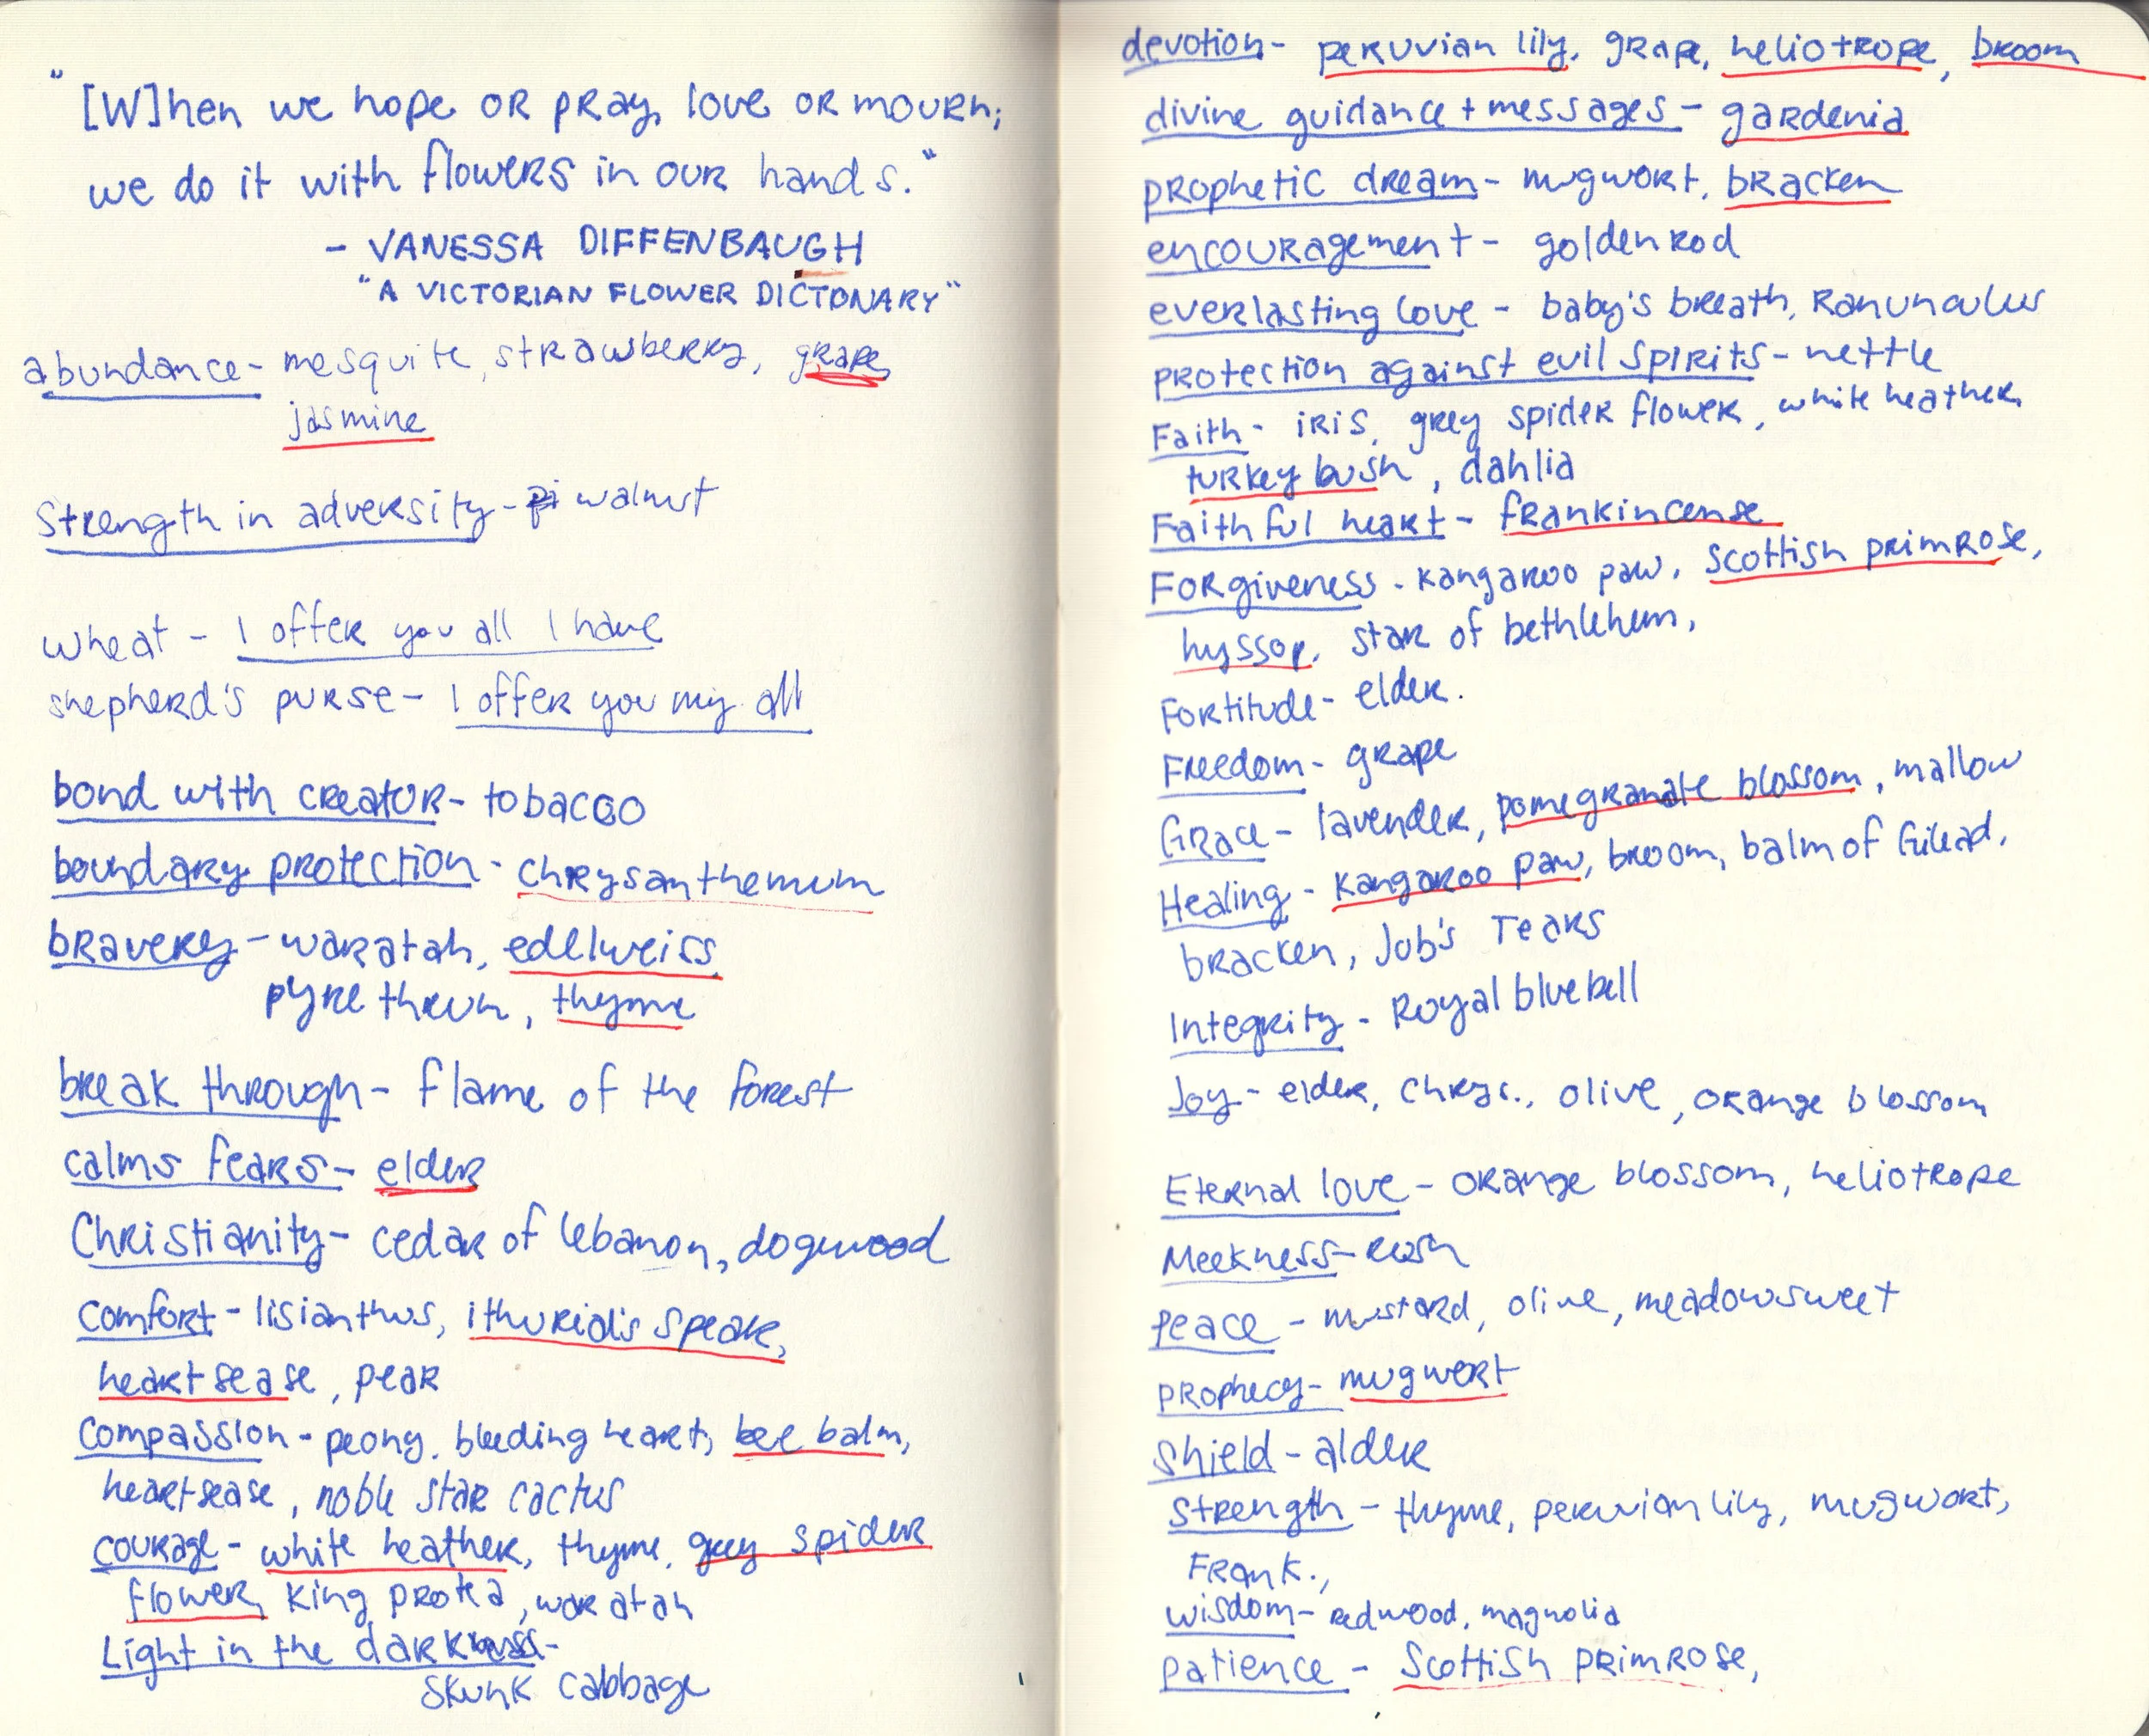 "
"[W]hen we hope or pray, love or mourn;
we do it with flowers in our hands."
- VANESSA DIFFENBAUGH
"A VICTORIAN FLOWER DICTONARY"
abundance- mesquite, strawberry, grape,
jasmine
Strength in adversity- walnut
wheat - I offer you all I have
shepherd's purse- I offer you my all
bond with creator- tobacco
boundary protection - chrysanthemum
bravery - waratah, edelweiss,
pyrethrum, thyme
break through- flame of the forest
calms fears- elder
Christianity- cedar of lebanon, dogwood
comfort - lisianthus, ithurial's speak,
heartsease, pear
compassion - peony, bleeding heart, bee balm,
heartsease, noble star cactus
courage - white heather, thyme, grey spider
flower, king protea, waratah
Light in the darkness-
skunk cabbage
devotion- peruvian lily, grape, heliotrope, broom
divine guidance + messages - gardenia
prophetic dream- mugwort, bracken
encouragement - goldenrod
everlasting love - baby's breath, Ranunculus
protection against evil spirits - nettle
Faith- iris, grey spider flower, white heather,
turkey bush, dahlia
Faithful heart- frankincense
Forgiveness - kangaroo paw, Scottish primrose,
hyssop, star of bethlehem,
Fortitude- elder.
Freedom- grape
Grace- lavender, pomegranate blossom, mallow
Healing - Kangaroo paw, broom, balm of Gilead,
bracken, Job's Tears
Integrity - Royal bluebell
Joy- elder, chrys., olive, orange blossom
Eternal love - orange blossom, heliotrope
Meekness- rush
peace - mustard, olive, meadowsweet
prophecy- mugwort
Shield- alder
Strength - thyme, peruvian lily, mugwort,
Frank.,
wisdom- redwood, magnolia
patience - Scottish primrose,